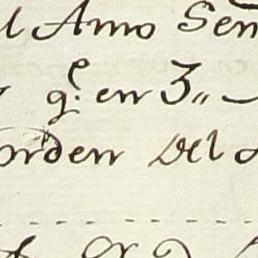 l Amo Señ
q.e en 3,,
orden del